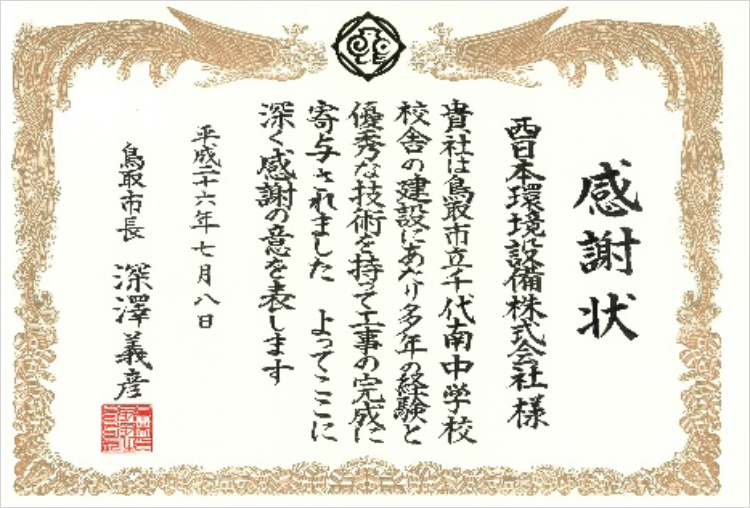 感謝状
西日本環境設備株式会社様
貴社は鳥取市立千代南中学校
校舎の建設にあたり多年の経験と
優秀な技術を持って工事の完成に
寄与されました よってここに
深く感謝の意を表します
平成二十六年七月八日
鳥取市長 深澤義彦